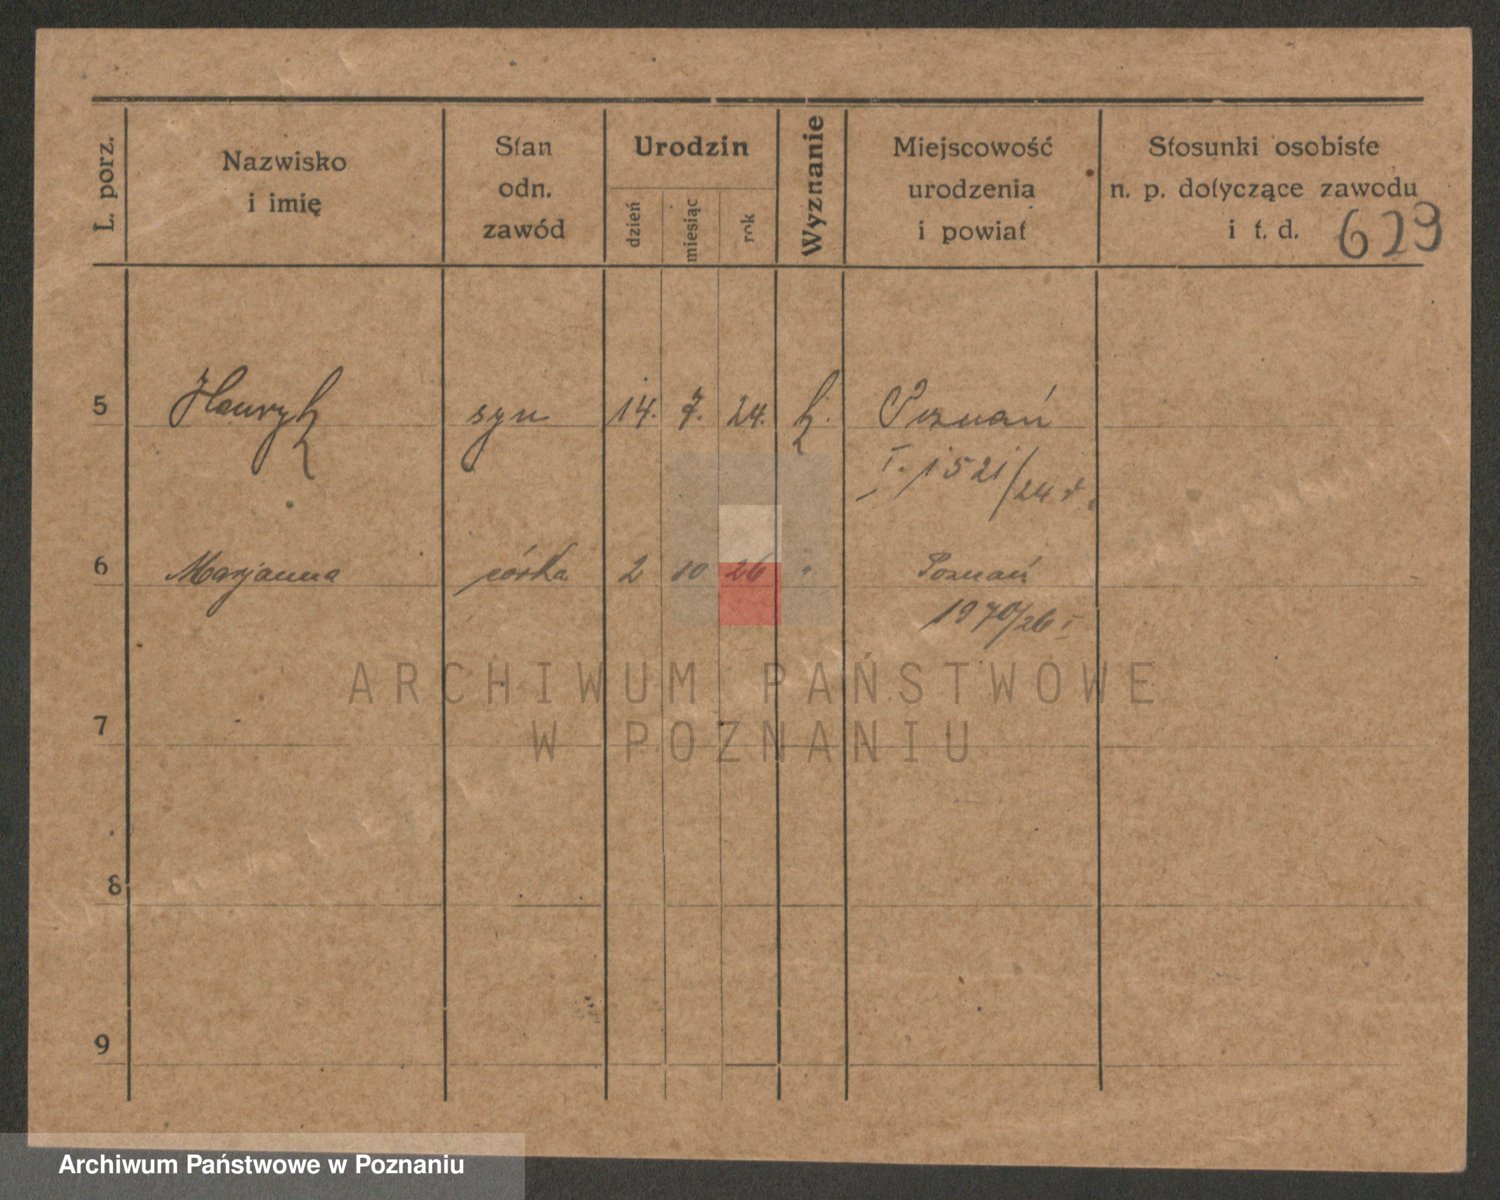 L. porz. Nazwisko i imię Stan odn. zawód Urodzin dzień miesiąc rok Wyznanie Miejscowość urodzenia i powiat Stosunki osobiste n. p. dotyczące zawodu i t. d.
629
5 Henryk syn 14. 7. 24. k. Poznań
I. 1521/24
6 Marjanna córka 2 10 26 " Poznań
1970/26 I
7
8
9
ARCHIWUM PAŃSTWOWE
W POZNANIU
Archiwum Państwowe w Poznaniu